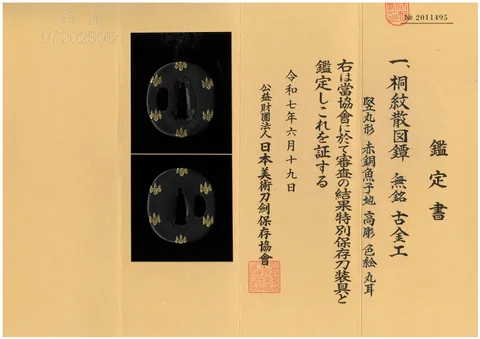 № 2011495
鑑定書
一、桐紋散図鐔 無銘 古金工
竪丸形 赤銅魚子地 高彫 色絵 丸耳
右は當協會に於て審査の結果特別保存刀装具と
鑑定しこれを証する
令和七年六月十九日
公益財團法人 日本美術刀劍保存協會